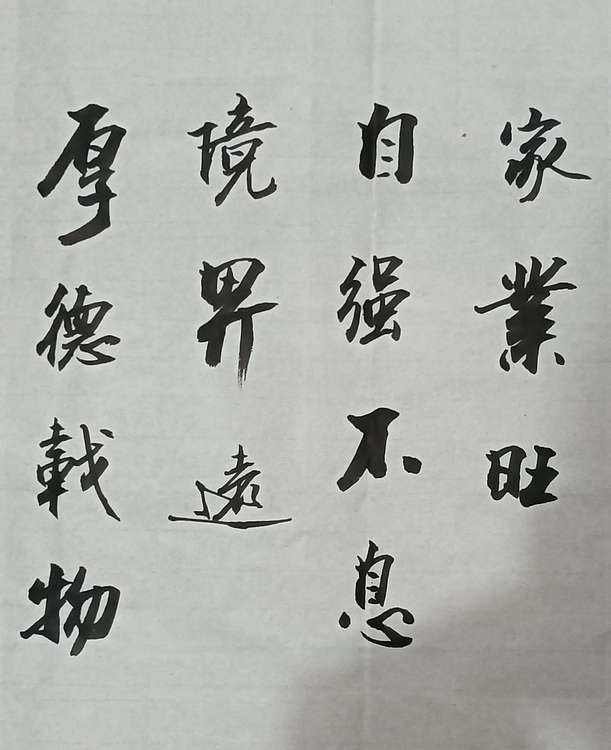 家業旺
自强不息
境界遠
厚德載物